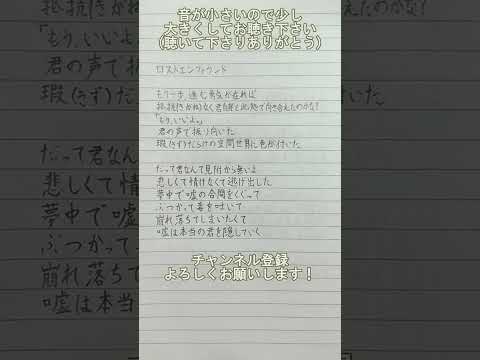 音が小さいので少し
大きくしてお聴き下さい
(聴いて下さりありがとう)
ロストエンファウンド
もう一歩、進む勇気が在れば
なく君自身と此処で向き合えたのかな?
「もう、いいよ。」
君の声で振り向いた
瑕(きず)だらけの空間世界に色が付いた
だって君なんて見附から無いよ
悲しくて情けなくて逃げ出した
夢中で嘘の合間をくぐって
ぶつかって毒を吐いて
崩れ落ちてしまいたくて
嘘は本当の君を隠していく
チャンネル登録
よろしくお願いします!
「もう、いいよ。
君の声で
瑕(きず)だ
だって君な
悲しくて情
夢中で嘘
ぶつかって
崩れ落ちて
嘘は本当